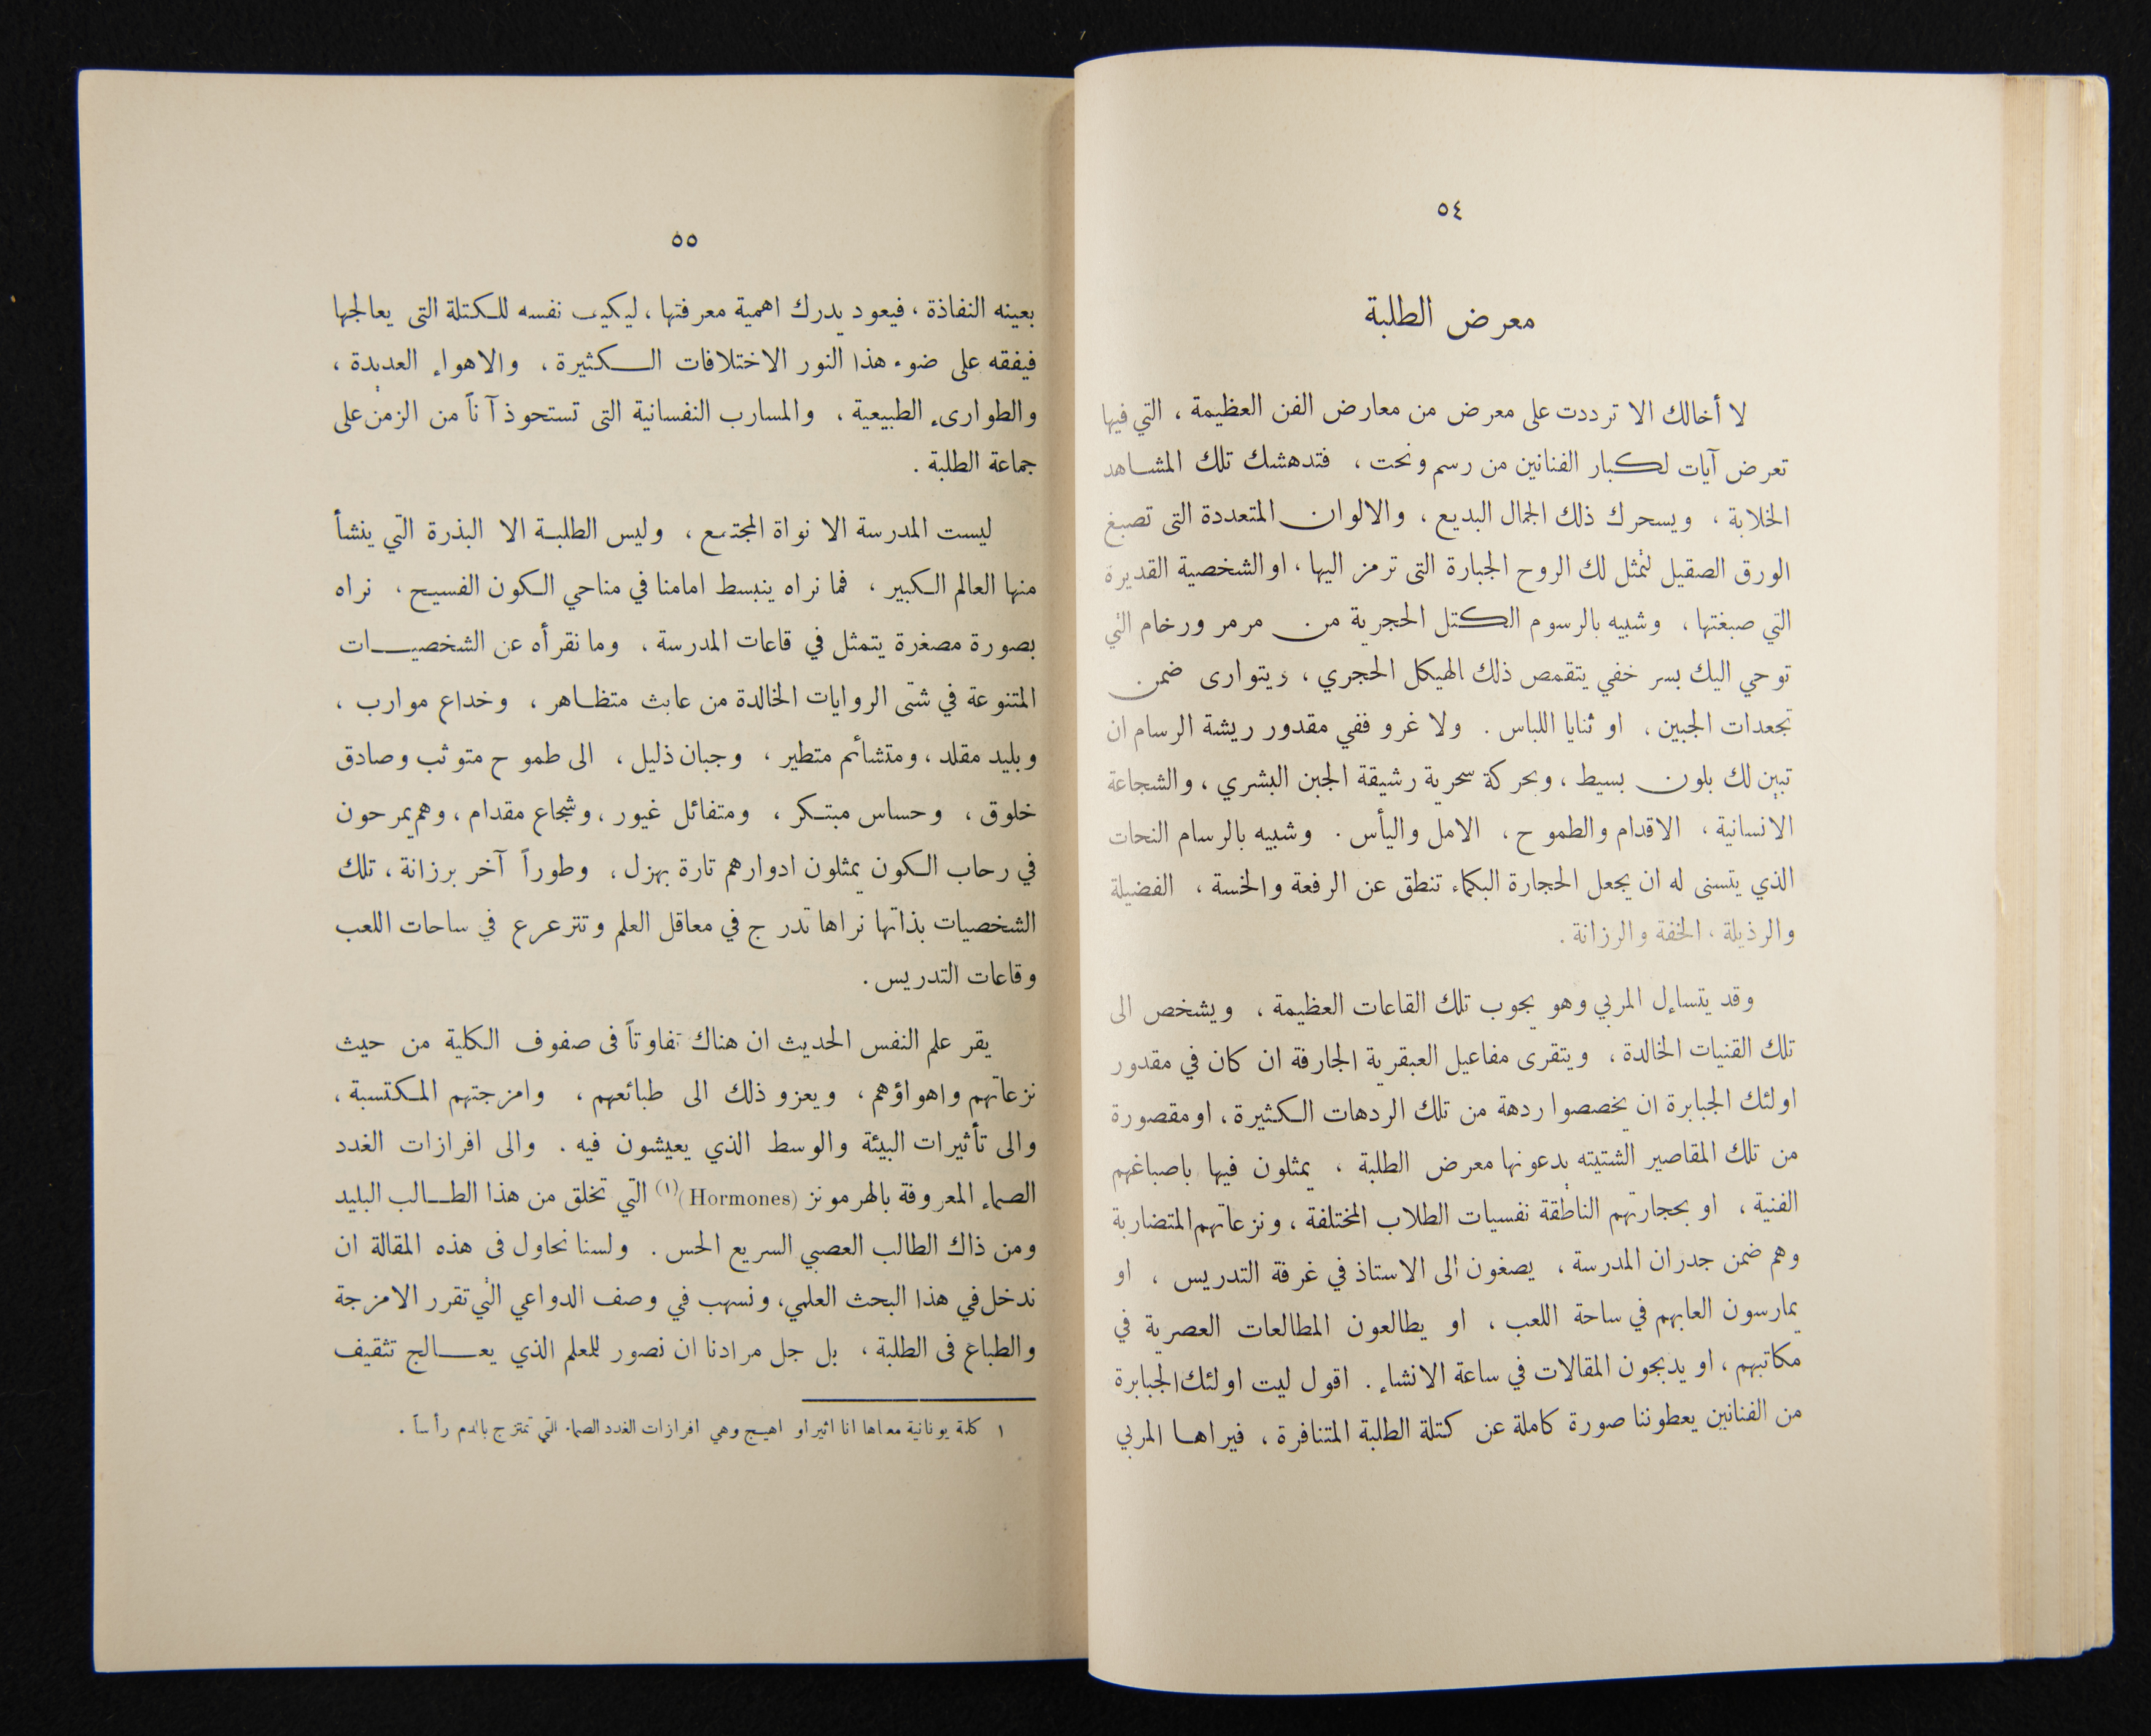 ٥٤
معرض الطلبة
لا أخالك الا ترددت على معرض من معارض الفن العظيمة ، التي فيها
تعرض آيات لكبار الفنانين من رسم ونحت ، فتدهشك تلك المشاهد
الخلابة ، ويسحرك ذلك الجمال البديع ، والالوان المتعددة التى تصبغ
الورق الصقيل لتمثل لك الروح الجبارة التى ترمز اليها ، او الشخصية القديرة
التي صبغتها ، وشبيه بالرسوم الكتل الحجرية من مرمر ورخام التي
توحي اليك بسر خفي يتقمص ذلك الهيكل الحجري ، ويتوارى ضمن
تجعدات الجبين ، او ثنايا اللباس . ولا غرو ففي مقدور ريشة الرسام ان
تبين لك بلون بسيط ، وبحركة سحرية رشيقة الجبن البشري ، والشجاعة
الانسانية ، الاقدام والطموح ، الامل واليأس . وشبيه بالرسام النحات
الذي يتسنى له ان يجعل الحجارة البكماء تنطق عن الرفعة والخسة ، الفضيلة
والرذيلة ، الخفة والرزانة .
وقد يتساءل المربي وهو يجوب تلك القاعات العظيمة ، ويشخص الى
تلك القنيات الخالدة ، ويتقرى مفاعيل العبقرية الجارفة ان كان في مقدور
اولئك الجبابرة ان يخصصوا ردهة من تلك الردهات الكثيرة ، او مقصورة
من تلك المقاصير الشتيته يدعونها معرض الطلبة ، يمثلون فيها باصباغهم
الفنية ، او بحجارتهم الناطقة نفسيات الطلاب المختلفة ، ونزعاتهم المتضاربة
وهم ضمن جدران المدرسة ، يصغون الى الاستاذ في غرفة التدريس ، او
يمارسون العابهم في ساحة اللعب ، او يطالعون المطالعات العصرية في
مكاتبهم ، او يدبجون المقالات في ساعة الانشاء . اقول ليت اولئك الجبابرة
من الفنانين يعطوننا صورة كاملة عن كتلة الطلبة المتنافرة ، فيراها المربي
٥٥
بعينه النفاذة ، فيعود يدرك اهمية معرفتها ، ليكيف نفسه للكتلة التى يعالجها
فيفقه على ضوء هذا النور الاختلافات الكثيرة ، والاهواء العديدة ،
والطوارىء الطبيعية ، والمسارب النفسانية التى تستحوذ آناً من الزمن على
جماعة الطلبة .
ليست المدرسة الا نواة المجتمع ، وليس الطلبة الا البذرة التي ينشأ
منها العالم الكبير ، فما نراه ينبسط امامنا في مناحي الكون الفسيح ، نراه
بصورة مصغرة يتمثل في قاعات المدرسة ، وما نقرأه عن الشخصيات
المتنوعة في شتى الروايات الخالدة من عابث متظاهر ، وخداع موارب ،
وبليد مقلد ، ومتشائم متطير ، وجبان ذليل ، الى طموح متوثب وصادق
خلوق ، وحساس مبتكر ، ومتفائل غيور ، وشجاع مقدام ، وهم يمرحون
في رحاب الكون يمثلون ادوارهم تارة بهزل ، وطوراً آخر برزانة ، تلك
الشخصيات بذاتها نراها تدرج في معاقل العلم وتترعرع في ساحات اللعب
وقاعات التدريس .
يقر علم النفس الحديث ان هناك تفاوتاً فى صفوف الكلية من حيث
نزعاتهم واهواؤهم ، ويعزو ذلك الى طبائعهم ، وامزجتهم المكتسبة ،
والى تأثيرات البيئة والوسط الذي يعيشون فيه . والى افرازات الغدد
الصماء المعروفة بالهرمونز (Hormones)(١) التي تخلق من هذا الطالب البليد
ومن ذاك الطالب العصبي السريع الحس . ولسنا نحاول فى هذه المقالة ان
ندخل في هذا البحث العلمي، ونسهب في وصف الدواعي التي تقرر الامزجة
والطباع فى الطلبة ، بل جل مرادنا ان نصور للمعلم الذي يعالج تثقيف
١ كلمة يونانية معناها انا اثير او اهيج وهي افرازات الغدد الصماء التي تمتزج بالدم رأساً .